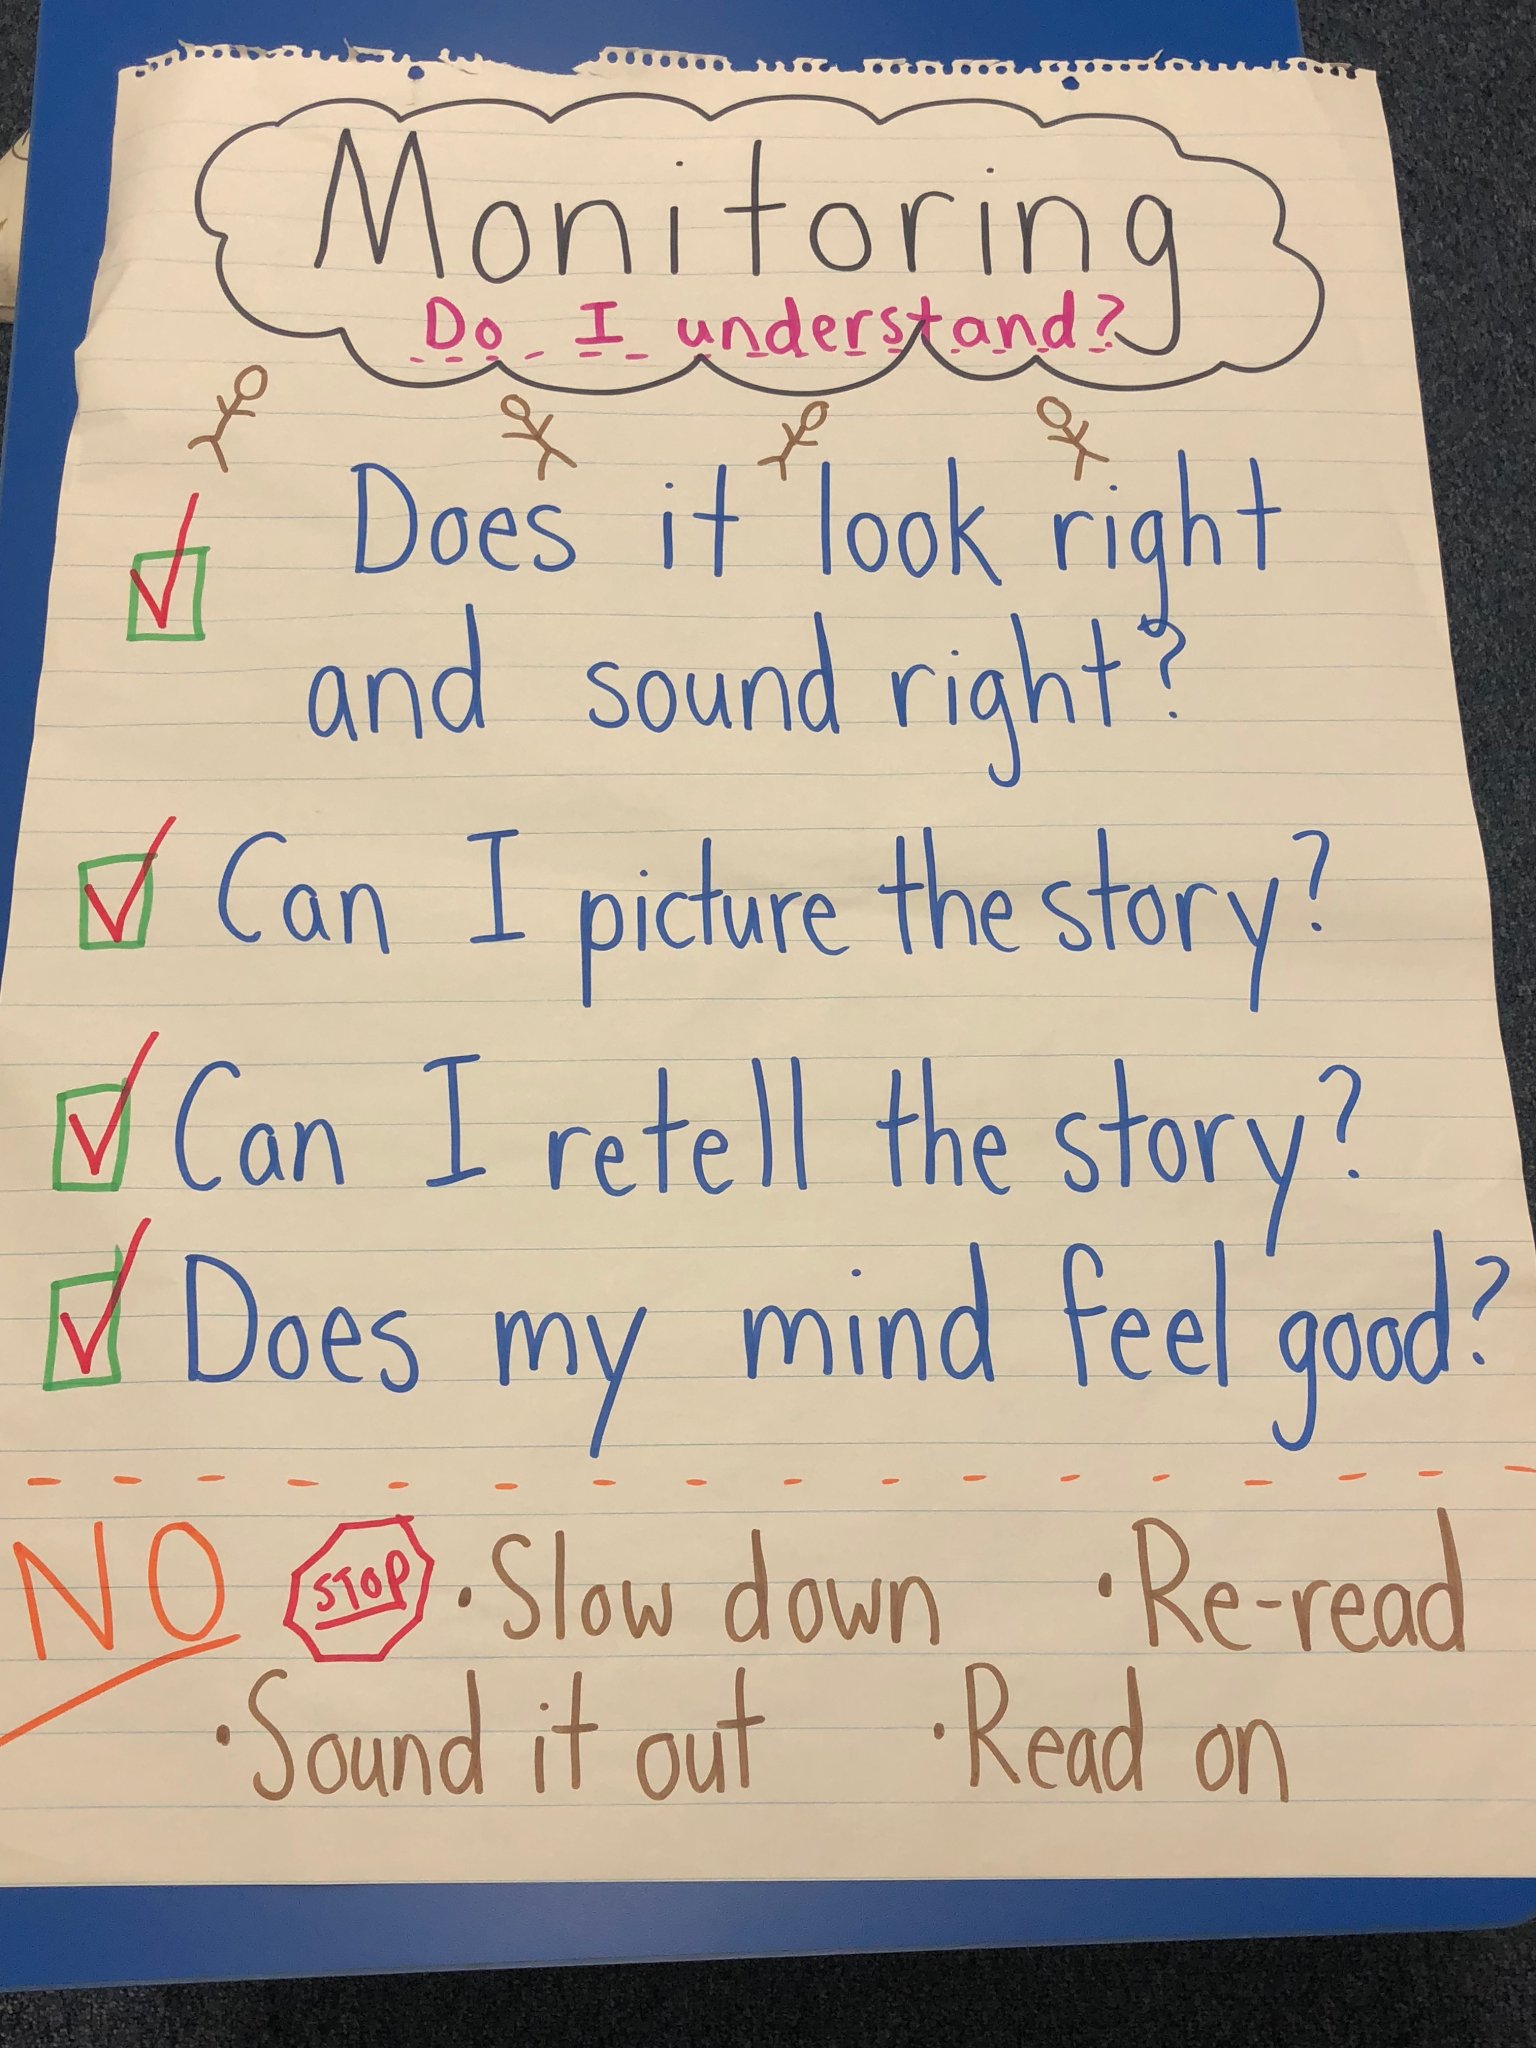 Monitoring
Do I understand?
Does it look right
and sound right?
Can I picture the story?
Can I retell the story?
Does my mind feel good?
NO STOP • Slow down • Re-read
• Sound it out • Read on